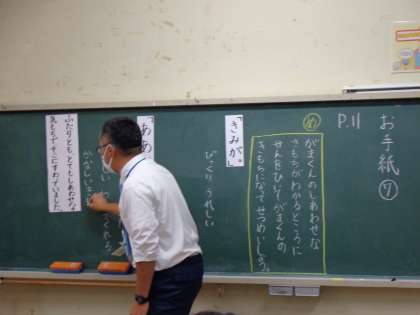 お手紙 ⑦
P.11
め
がまくんのしあわせな
きもちがわかるところに
せんをひいてがまくんの
きもちになってせつめいしよう。
「きみが。
びっくり うれしい
「ああ
ふたりとも、とてもしあわせな
気もちで、そこにすわっていました。